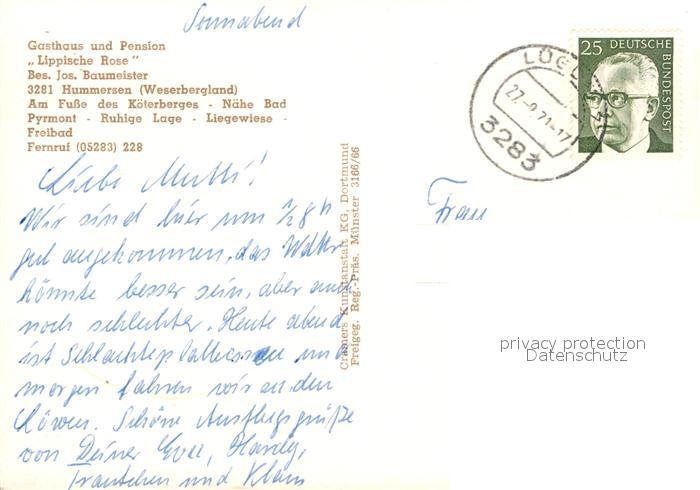 Sonnabend
Gasthaus und Pension
„Lippische Rose"
Bes. Jos. Baumeister
3281 Hummersen (Weserbergland)
Am Fuße des Köterberges - Nähe Bad
Pyrmont - Ruhige Lage - Liegewiese -
Freibad
Fernruf (05283) 228
Liebe Mutti!
Wir sind hier um ½ 8 h
gut angekommen, das Wetter
könnte besser sein, aber auch
noch schlechter. Heute abend
ist Schlachteplatteessen und
morgen fahren wir zu den
Löwen. Schöne Ausflugsgrüße
von Deiner Hardy,
Trautchen und Klaus
Cramers Kunstanstalt KG, Dortmund
Freigeg. Reg.-Präs. Münster 3166/66
27.-9.71-17
3283
25 DEUTSCHE
BUNDESPOST
Frau
privacy protection
Datenschutz